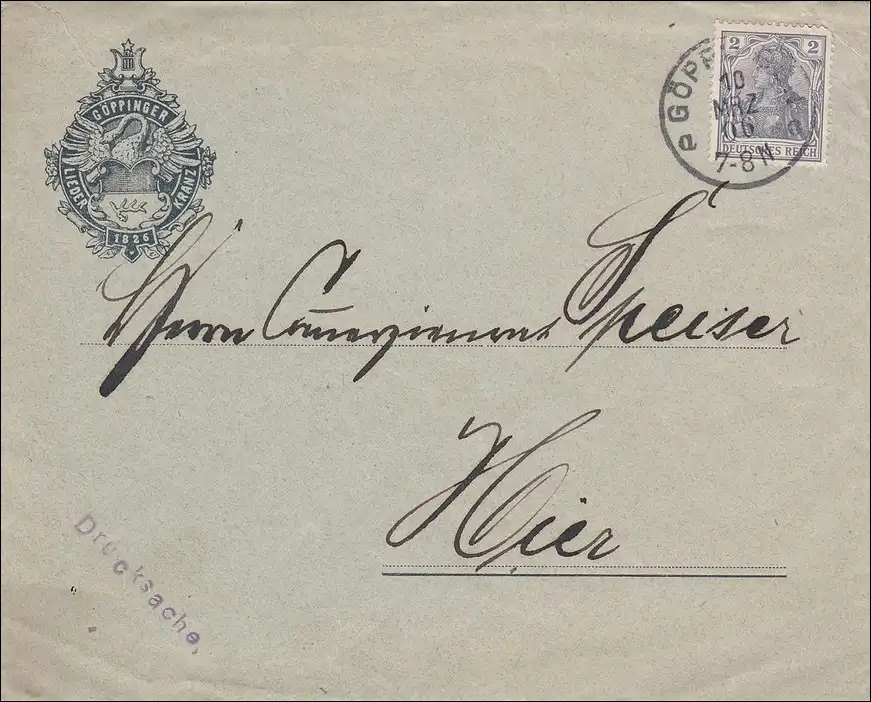 GÖPPINGER
LIEDER KRANZ
1826
2 2
DEUTSCHES REICH
GÖPP
10
MRZ
06
7-8 N
Herrn Commerzienrat Speiser
Hier
Drucksache.